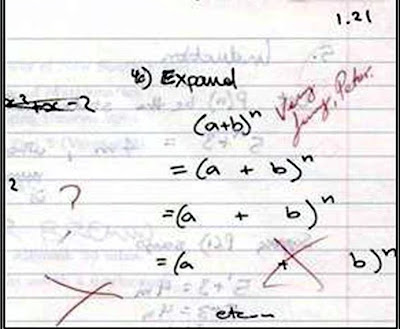 1.21
4c) Expand
(a+b)ⁿ
= (a + b)ⁿ
= (a + b)ⁿ
= (a + b)ⁿ
etc...
Very
funny, Peter.
x² + x - 2
2
?